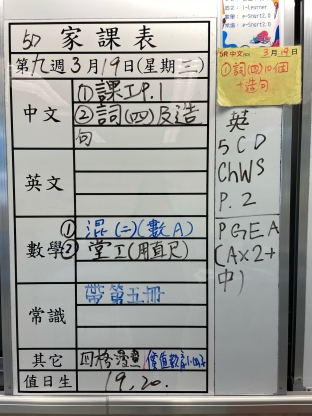 5D 家課表
第九週3月19日(星期三)
中文
①課工P.1
②詞(四)及造
句
英文
數學
①混(二)(數A)
②堂工(用直尺)
常識
帶第五冊
其它
四格漫畫
值日生
19,20.
英
5CD
ChWS
P.2
PGEA
(Ax2+
中)
3月19日
①詞(四)10個
+造句